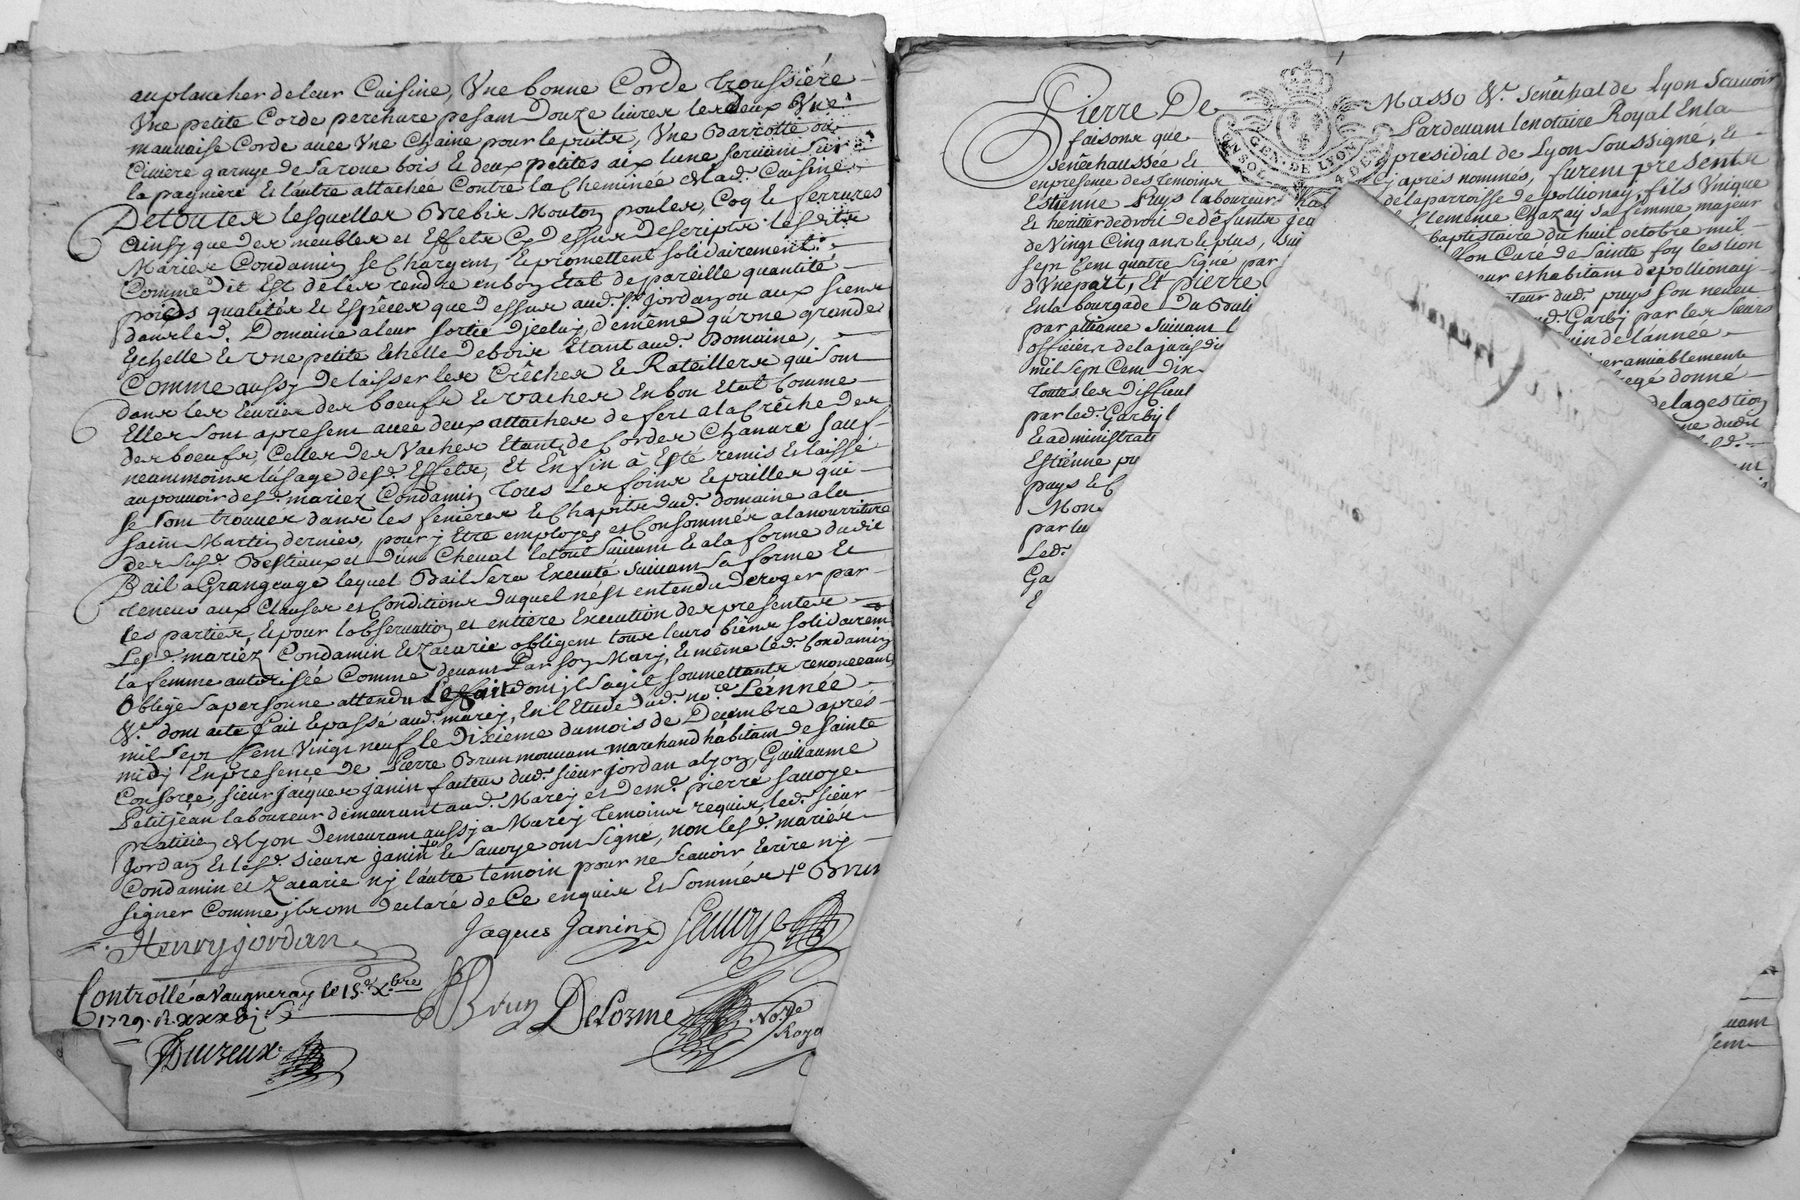 au plancher de leur Cuisine, Vne bonne Corde troussiére
Vne petite Corde perchure pesam Douze livres les deux Vne
mauvaise Corde avec Vne Chaine pour le puits, Vne Barrotte ou
Civiere garnye de sa roue bois & deux petites aix lune servam sur
la pagniere & l'autre attachée Contre la Cheminée de lad. Cuisine.
De toutes lesquelles Brebis Mouton poules, Coq & ferrures
ainsy que des meubles et Effets Cy dessus descripts lesdits
Mariez Condamin se Chargent, & promettent solidairement
Comme Dit Est de les rendre en bon Etat de pareille quantité
poids qualités & Espêces que dessus aud. Sr. Jordan ou aux siens
dans led. Domaine a leur sortie D'jceluy, de même qu'vne grande
Eschelle & vne petite Echelle de bois Etant aud. Domaine,
Comme aussy De laisser les Crêches & Rateillers qui sont
dans les Ecuries des boeufs & vaches En bon Etat Comme
Elles sont apresent avec deux attaches de fert a la Crêche des
des boeufs, Celles des Vaches Etant de Cordes Chanvre sauf
neammoins l'usage desd. Effets, Et En fin à Esté remis & laissé
au pouvoir desd. mariez Condamin Tous Les foins & pailles qui
se sont trouvez dans les fenieres & Chapits dud. domaine a la
saint Martin dernier, pour y Etre employés et Consommés a la nourriture
des susd. Bestiaux et d'un Cheval le tout suivant & a la forme dudit
Bail a Grangeage lequel Bail sera Executé suivant sa forme Et
teneur aux Clauses et Conditions duquel n'est entendu deroger par
les parties, & pour l'observation et entiére Execution des presentes
Lesd. mariez Condamin & Zacarie obligent tous leurs biens solidairem
la femme autorisée Comme devant Par son Mary, & même led. Condamin
Oblige sa personne attendu Le fait dont jl s'agit soumettants renonceant
&c. dont acte fait & passé aud. marcy, En l'Etude dud. no.re L'année
mil sept Cent Vingt neuf le Dixieme du mois de Decembre après
midy En presence de Pierre Brun mouvant marchand habitant de Sainte
Consorce, sieur Jacques Janin facteur dud. sieur Jordan a Lyon, Guillaume
Petitjean laboureur demeurant aud. Marcy et de me. pierre Savoye
praticien de Lyon Demeurant aussy a Marcy Temoins requis, led. sieur
Jordan Et lesd. sieurs Janin & Savoye ont signé, non lesd. mariés
Condamin et Zacarie ny l'autre temoin pour ne Scavoir Ecrire ny
signer Comme jls ont Declaré de Ce enquis Et Sommés +° Brun
Henry jordan
Jaques Janin Savoye
Controllé a Vaugneray le 15e Xbre
1729. R. xxx
Brun DeLorme No.re
Roya
Duvzeux
Pierre De
Masso &c. Sénéchal de Lyon Scavoir
faisons que
Pardevant le notaire Royal En la
GEN. DE LYON
Sénéchaussée &
presidial de Lyon Soussigné, &
en presence des temoins
cj aprés nommés, furent presents
Estienné Puys laboureur
de la parroisse de pollionay, fils Vnique
& heritier de droit de défunts
Clemence Chazey sa femme, majeur
de Vingt Cinq ans & plus, sui
baptistaire du huit octobre mil
sept Cent quatre signé par
Curé de Sainte foy les lion
d'Vne part, Et Pierre
eur et habitant de pollionay
En la bourgade Du
teur dud. puys son neveu
par alliance suivant
d. Garby par les Sieurs
officiers de la jurisdi
uin de l'année
mil sept Cent dix
er amiablement
Toutes les Difficul
donné
par led. Garby
de la gestion
& administrati
ne dudit
Estienne pu
puys &
Mon
par lu
Led.
Ga